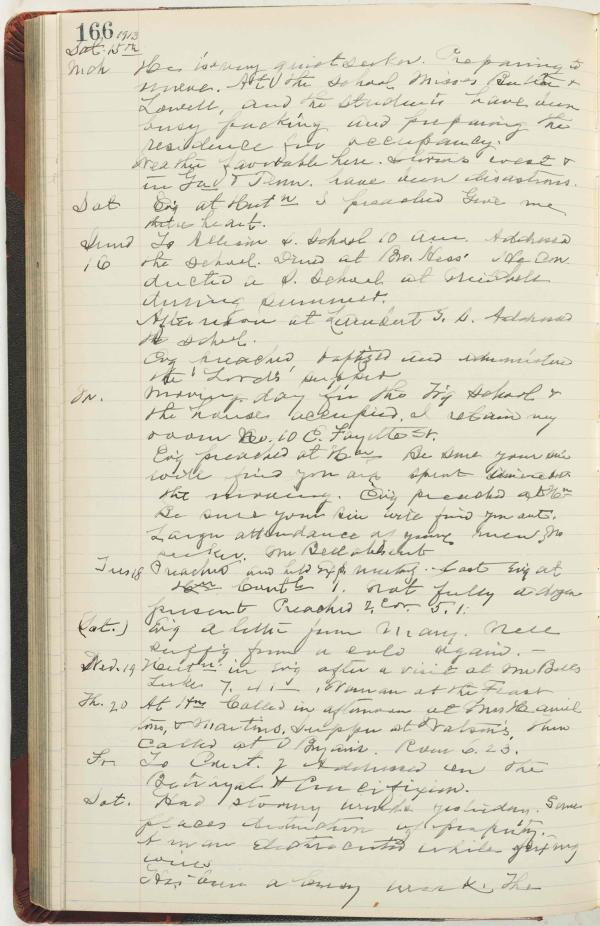 166 1913
Sat. 15th
Mch Has is very quiet Preparing to
move. At the school, Misses &
Lowell, and the students have been
busy packing and preparing the
residence for occupancy.
Weather favorable here. west &
in Ga & Tenn. have been disastrous.
Sat Evg at I preached Give me
thine heart.
Sund To S. School 10 a.m. Addressed
16 the school. Dined at Bro. Hess' He con
ducted a S. School at
during summer.
Afternoon at S. S. Addressed
the school.
Evg preached baptized and administered
the Lord's supper
Moving day in the Trg School &
the houses occupied. I retain my
room No. 10 E. Fayette St.
Evg preached at Be sure your sin
will find you out spent
the morning. Evg preached at
Be sure your sin will find you out.
Large attendance of young men, No
seeker. Mr Bell absent
Tues 18 Preached and held meeting. Last Evg at
1. Not fully a dozen
present Preached 2 Cor. 5.1.
(Sat.) Evg a letter from Mary. Nell
suffg from a cold again. —
Wed. 19 in Evg after a visit at Mr Bells
Luke 7. 41 – Woman at the Feast
Th. 20 At Called in afternoon at Mrs Hamil
tons, & Martins, Supper at Watson's, then
called at O'Bryans. Rom 6.23.
Fr To Addressed on the
Betrayal & Crucifixion.
Sat. Had stormy winds yesterday. Some
places destruction of property.
A man electrocuted while fixing
wires
Has been a busy week. The